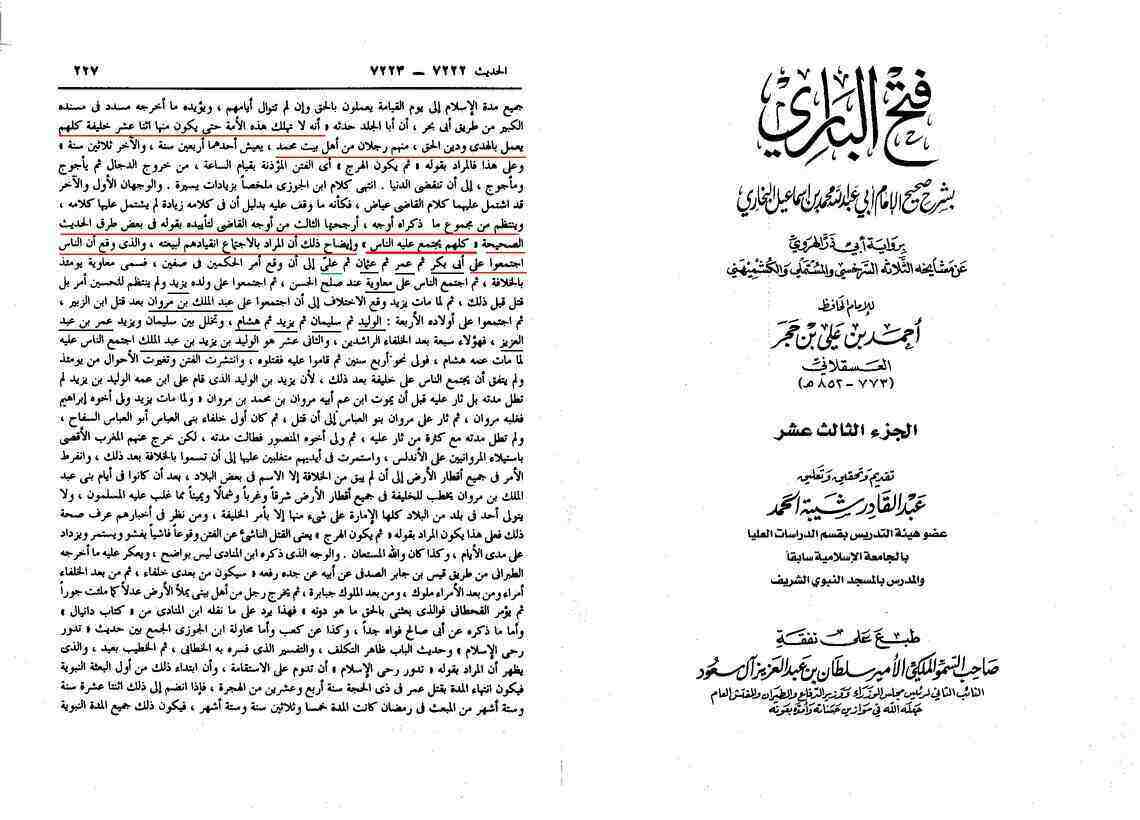 فتح الباري
بشرح صحيح الإمام أبي عبد الله محمد بن إسماعيل البخاري
برواية أبي ذر الهروي
عن مشايخه الثلاثة السرخسي والمستملي والكشميهني
للإمام الحافظ
أحمد بن علي بن حجر
العسقلاني
(٧٧٣ - ٨٥٢ هـ)
الجزء الثالث عشر
تقديم وتحقيق وتعليق
عبد القادر شيبة الحمد
عضو هيئة التدريس بقسم الدراسات العليا
بالجامعة الإسلامية سابقاً
والمدرس بالمسجد النبوي الشريف
طبع على نفقة
صاحب السمو الملكي الأمير سلطان بن عبد العزيز آل سعود
النائب الثاني لرئيس مجلس الوزراء ووزير الدفاع والطيران والمفتش العام
جعله الله في موازين حسناته وأمده بعونه
الحديث ٧٢٢٢ – ٧٢٢٣
٢٢٧
جميع مدة الإسلام إلى يوم القيامة يعملون بالحق وإن لم تتوال أيامهم ، ويؤيده ما أخرجه مسدد فى مسنده
الكبير من طريق أبى بحر ، أن أبا الجلد حدثه « أنه لا تهلك هذه الأمة حتى يكون منها اثنا عشر خليفة كلهم
يعمل بالهدى ودين الحق ، منهم رجلان من أهل بيت محمد ، يعيش أحدهما أربعين سنة ، والآخر ثلاثين سنة »
وعلى هذا فالمراد بقوله « ثم يكون الهرج » أى الفتن المؤذنة بقيام الساعة ، من خروج الدجال ثم يأجوج
ومأجوج ، إلى أن تنقضى الدنيا . انتهى كلام ابن الجوزى ملخصاً بزيادات يسيرة . والوجهان الأول والآخر
قد اشتمل عليهما كلام القاضى عياض ، فكأنه ما وقف عليه بدليل أن فى كلامه زيادة لم يشتمل عليها كلامه ،
وينتظم من مجموع ما ذكراه أوجه ، أرجحها الثالث من أوجه القاضى لتأييده بقوله فى بعض طرق الحديث
الصحيحة « كلهم يجتمع عليه الناس » وإيضاح ذلك أن المراد بالاجتماع انقيادهم لبيعته ، والذى وقع أن الناس
اجتمعوا على أبى بكر ثم عمر ثم عثمان ثم علىّ إلى أن وقع أمر الحكمين فى صفين ، فسمى معاوية يومئذ
بالخلافة ، ثم اجتمع الناس على معاوية عند صلح الحسن ، ثم اجتمعوا على ولده يزيد ولم ينتظم للحسين أمر بل
قتل قبل ذلك ، ثم لما مات يزيد وقع الاختلاف إلى أن اجتمعوا على عبد الملك بن مروان بعد قتل ابن الزبير ،
ثم اجتمعوا على أولاده الأربعة : الوليد ثم سليمان ثم يزيد ثم هشام ، وتخلل بين سليمان ويزيد عمر بن عبد
العزيز ، فهؤلاء سبعة بعد الخلفاء الراشدين ، والثانى عشر هو الوليد بن يزيد بن عبد الملك اجتمع الناس عليه
لما مات عمه هشام ، فولى نحو أربع سنين ثم قاموا عليه فقتلوه ، وانتشرت الفتن وتغيرت الأحوال من يومئذ
ولم يتفق أن يجتمع الناس على خليفة بعد ذلك ، لأن يزيد بن الوليد الذى قام على ابن عمه الوليد بن يزيد لم
تطل مدته بل ثار عليه قبل أن يموت ابن عم أبيه مروان بن محمد بن مروان » ولما مات يزيد ولى أخوه إبراهيم
فغلبه مروان ، ثم ثار على مروان بنو العباس إلى أن قتل ، ثم كان أول خلفاء بنى العباس أبو العباس السفاح ،
ولم تطل مدته مع كثرة من ثار عليه ، ثم ولى أخوه المنصور فطالت مدته ، لكن خرج عنهم المغرب الأقصى
باستيلاء المروانيين على الأندلس ، واستمرت فى أيديهم متغلبين عليها إلى أن تسموا بالخلافة بعد ذلك ، وانفرط
الأمر فى جميع أقطار الأرض إلى أن لم يبق من الخلافة إلا الاسم فى بعض البلاد ، بعد أن كانوا فى أيام بنى عبد
الملك بن مروان يخطب للخليفة فى جميع أقطار الأرض شرقاً وغرباً وشمالًا ويميناً مما غلب عليه المسلمون ، ولا
يتولى أحد فى بلد من البلاد كلها الإمارة على شىء منها إلا بأمر الخليفة ، ومن نظر فى أخبارهم عرف صحة
ذلك فعلى هذا يكون المراد بقوله « ثم يكون الهرج » يعنى القتل الناشئ عن الفتن وقوعاً فاشياً يفشو ويستمر ويزداد
على مدى الأيام ، وكذا كان والله المستعان . والوجه الذى ذكره ابن المنادى ليس بواضح ، ويعكر عليه ما أخرجه
الطبرانى من طريق قيس بن جابر الصدفى عن أبيه عن جده رفعه « سيكون من بعدى خلفاء ، ثم من بعد الخلفاء
أمراء ومن بعد الأمراء ملوك ، ومن بعد الملوك جبابرة ، ثم يخرج رجل من أهل بيتى يملأ الأرض عدلًا كما ملئت جوراً
ثم يؤمر القحطانى فوالذى بعثنى بالحق ما هو دونه » فهذا يرد على ما نقله ابن المنادى من « كتاب دانيال »
وأما ما ذكره عن أبى صالح فواه جداً ، وكذا عن كعب وأما محاولة ابن الجوزى الجمع بين حديث « تدور
رحى الإسلام » وحديث الباب ظاهر التكلف ، والتفسير الذى فسره به الخطابى ، ثم الخطيب بعيد ، والذى
يظهر أن المراد بقوله « تدور رحى الإسلام » أن تدوم على الاستقامة ، وأن ابتداء ذلك من أول البعثة النبوية
فيكون انتهاء المدة بقتل عمر فى ذى الحجة سنة أربع وعشرين من الهجرة ، فإذا انضم إلى ذلك اثنتا عشرة سنة
وستة أشهر من المبعث فى رمضان كانت المدة خمسا وثلاثين سنة وستة أشهر ، فيكون ذلك جميع المدة النبوية